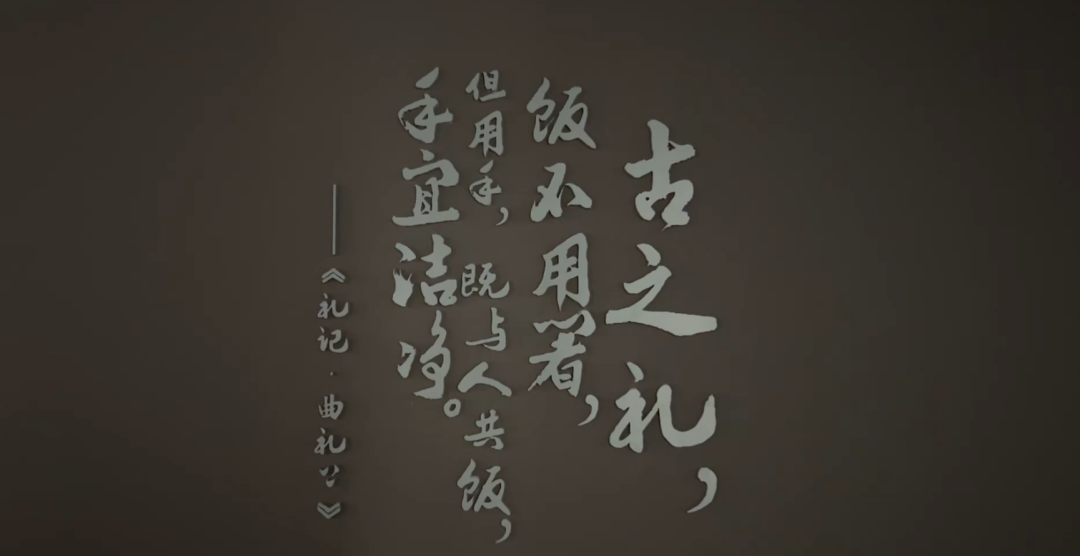 古之礼，
饭不用箸，
但用手，既与人共饭，
手宜洁净。
——《礼记·曲礼》